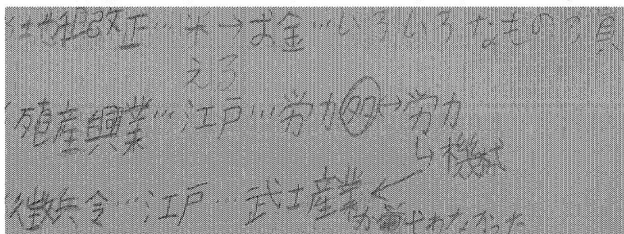 地租改正…米→お金…いろいろなものの買
える
殖産興業…江戸…労力㋟↔労力
↳機械
徴兵令…江戸…武士産業が